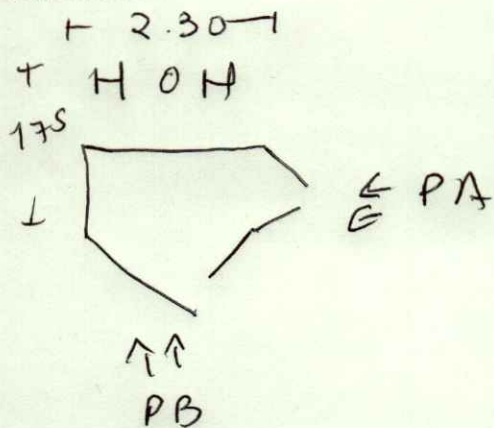 ⊢ 2.30 ⊣
H O H
175
PA
PB